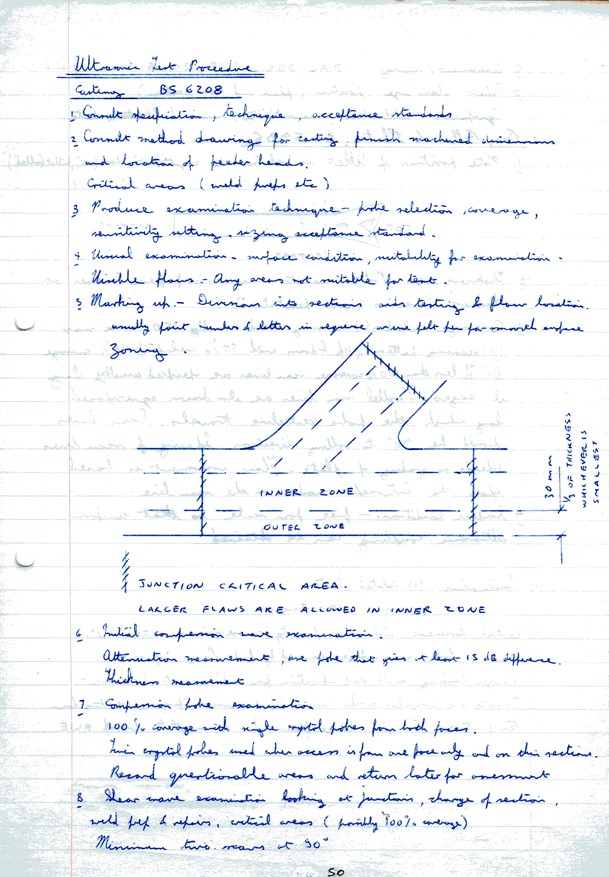 Ultrasonic Test Procedure
Castings BS 6208
1 Consult specification, technique, acceptance standards
2 Consult method drawing for casting finish machined dimensions
and location of feeder heads.
Critical areas (weld preps etc)
3 Produce examination technique - probe selection, coverage,
sensitivity setting, sizing acceptance standard.
4 Visual examination - surface condition, suitability for examination -
Visible flaws - Any areas not suitable for test.
5 Marking up - Division into sections aids testing & flaw location.
usually paint numbers & letters in sequence or use felt pen for smooth surface
Zoning.
INNER ZONE
OUTER ZONE
30 mm
1/3 OF THICKNESS
WHICHEVER IS
SMALLEST
JUNCTION CRITICAL AREA.
LARGER FLAWS ARE ALLOWED IN INNER ZONE
6 Initial compression wave examination.
Attenuation measurement, use probe that gives at least 15 dB difference.
Thickness measurement
7 Compression probe examination
100% coverage with single crystal probes from both faces.
Twin crystal probes used when access is from one face only and on thin sections.
Record questionable areas and return later for assessment
8 Shear wave examination looking at junctions, change of section,
weld prep & repairs, critical areas (possibly 100% coverage)
Minimum two scans at 90°
50